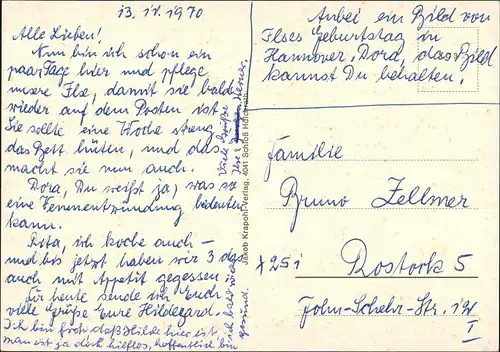 13. IX. 1970
Alle Lieben!
Nun bin ich schon ein
paar Tage hier und pflege
unsere Ilse, damit sie bald
wieder auf dem Posten ist.
Sie sollte eine Woche streng
das Bett hüten, und das
macht sie nun auch.
Dora, Du weißt ja, was so
eine Venenentzündung bedeuten
kann.
Rita, ich koche auch –
und bis jetzt haben wir 3 das
auch mit Appetit gegessen.
Für heute sende ich Euch
viele Grüße Eure Hildegard.
Ich bin froh daß Hilde hier ist,
man ist ja doch hilflos, hoffentlich bin
ich bald wieder
gesund.
Viele Grüße
Ilse
Jakob Krapohl-Verlag, 4041 Schloß Hülchrath
Anbei ein Bild von
Ilses Geburtstag in
Hannover, Dora, das Bild
kannst Du behalten!
Familie
Bruno Zellmer
X 251
Rostock 5
John-Schehr-Str. 12
I